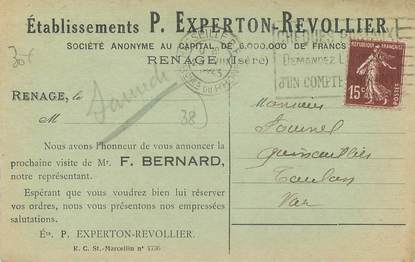 Établissements P. EXPERTON-REVOLLIER
SOCIÉTÉ ANONYME AU CAPITAL DE 6.000.000 DE FRANCS
RENAGE (Isère)
DEMANDEZ L
D'UN COMPTE
RÉPUBLIQUE FRANÇAISE
15c
POSTES
RENAGE, le
Samedi
M
38
Nous avons l'honneur de vous annoncer la
prochaine visite de Mr. F. BERNARD,
notre représentant.
Espérant que vous voudrez bien lui réserver
vos ordres, nous vous présentons nos empressées
salutations.
Éts. P. EXPERTON-REVOLLIER.
R. C. St.-Marcellin nº 4736
Monsieur
Fournel
quincaillier
Toulon
Var